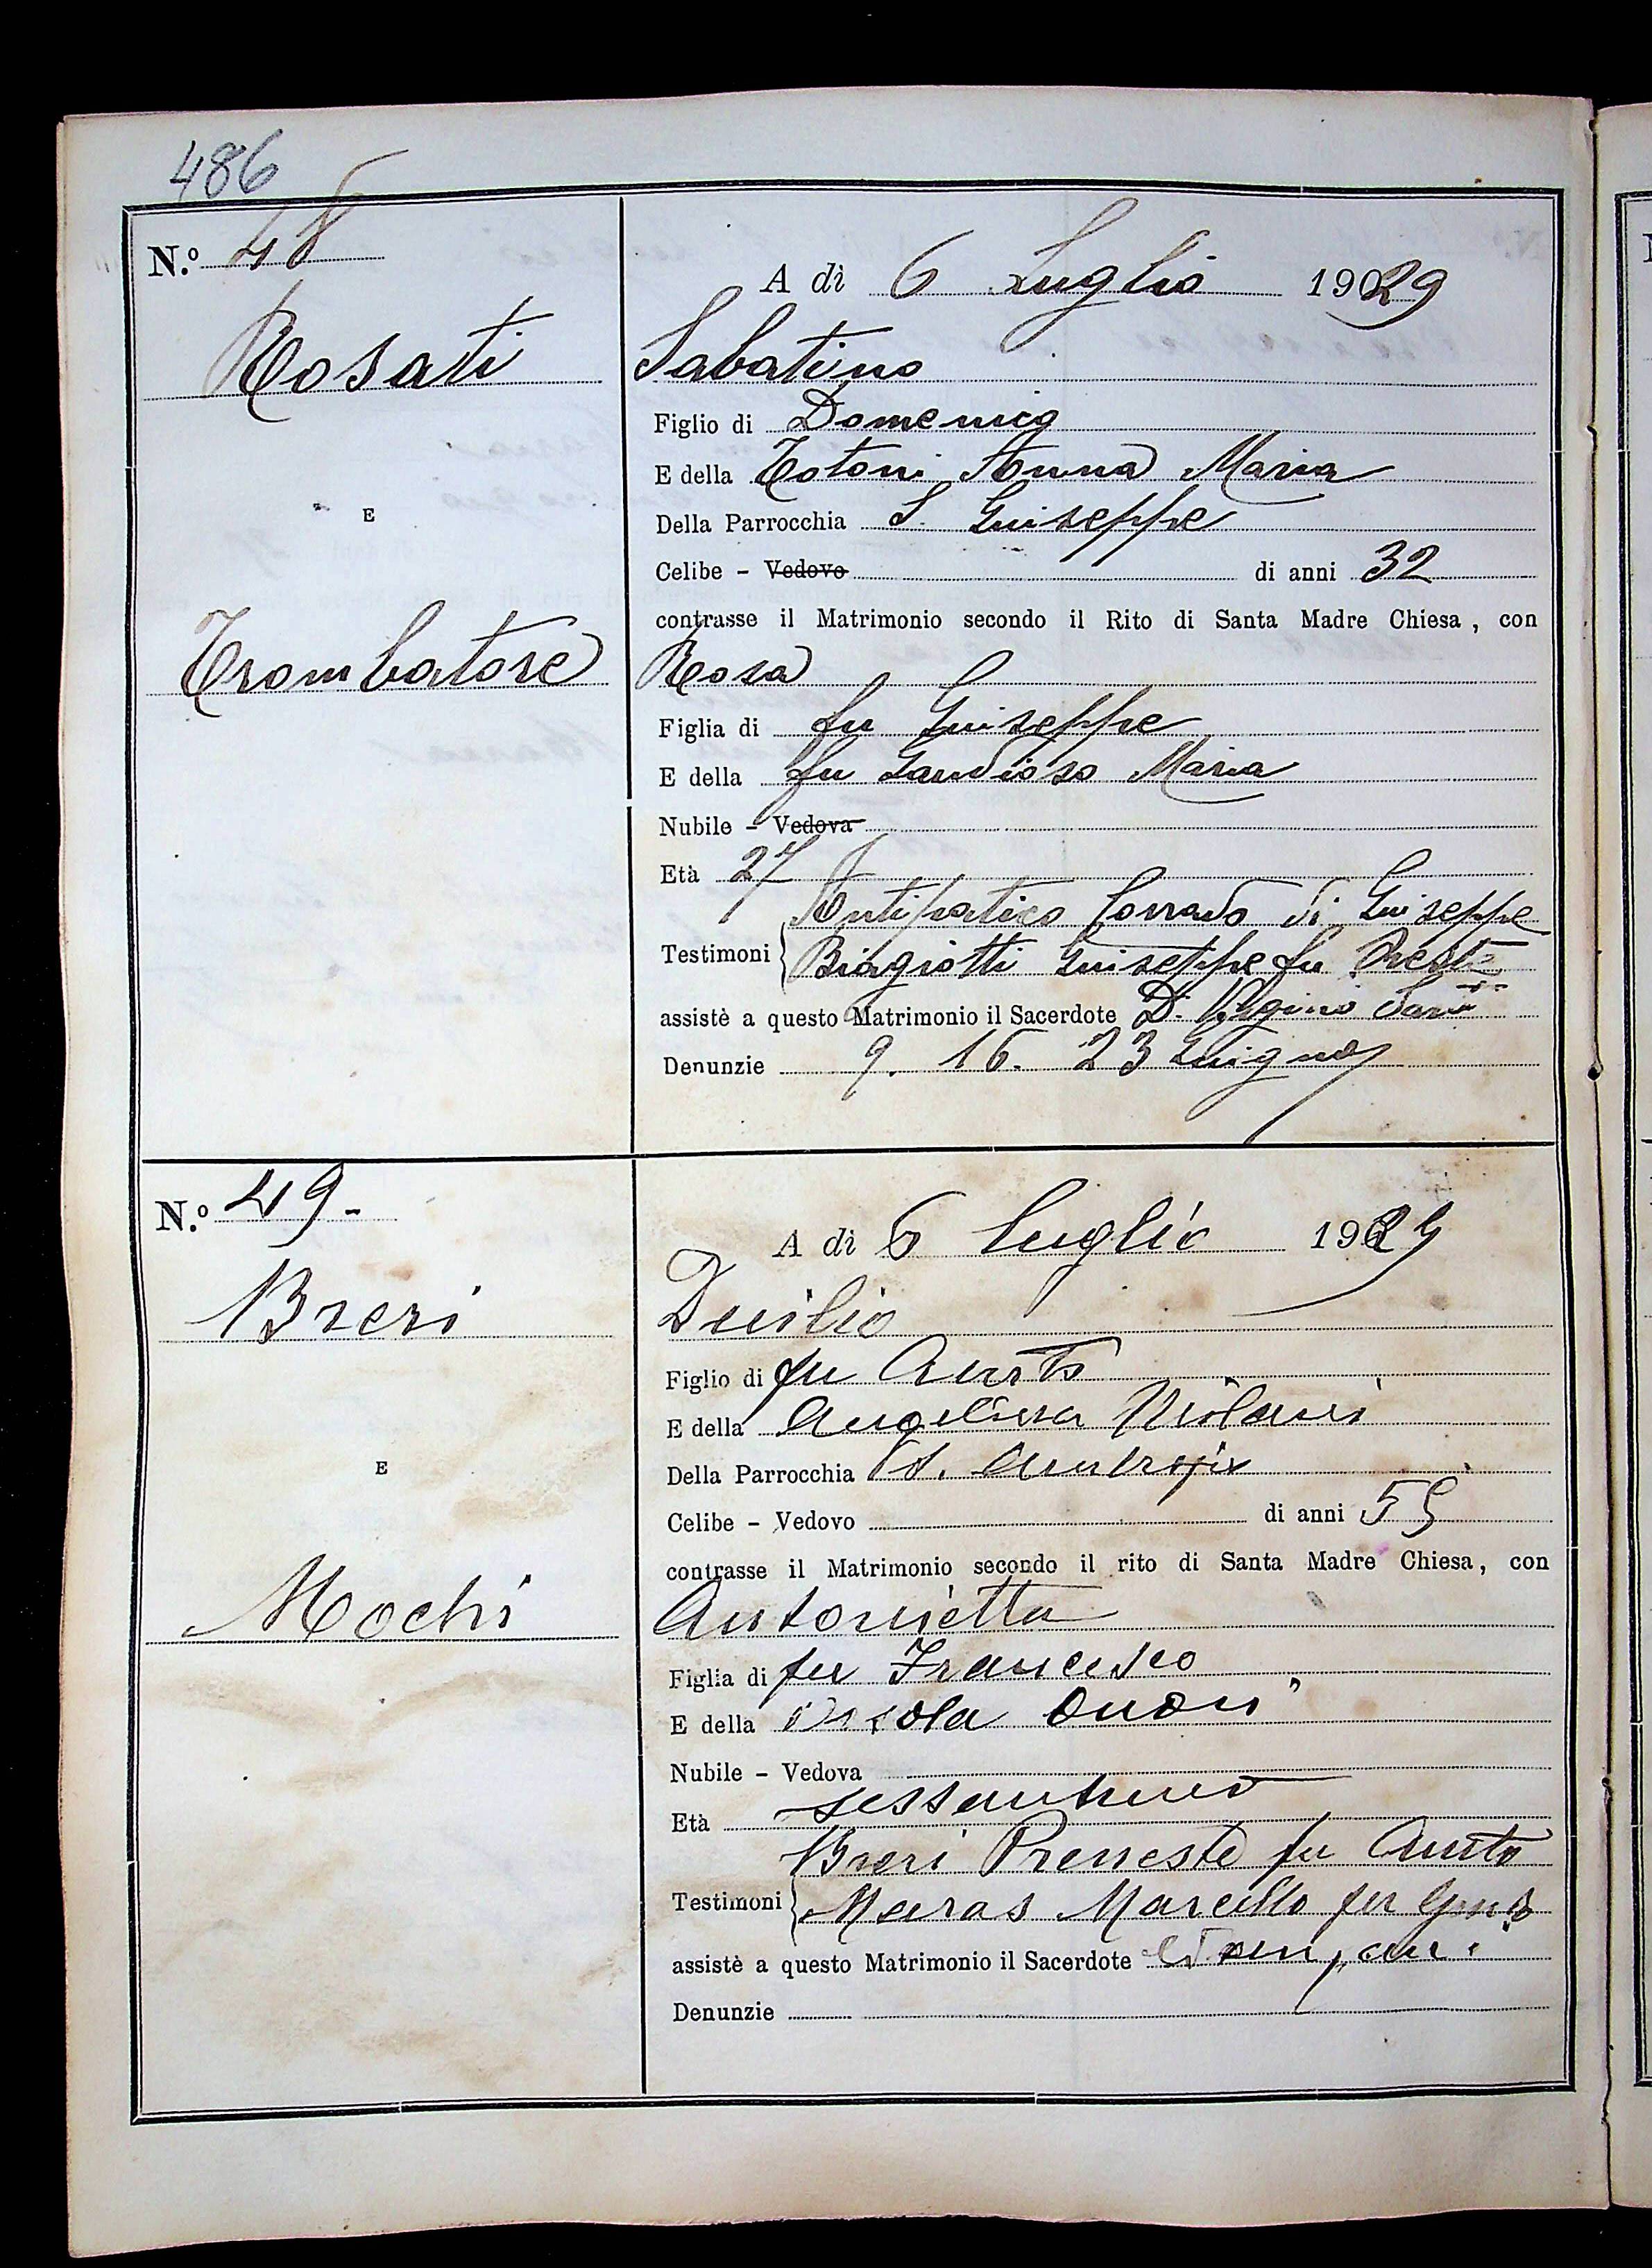 486
N.º 48
A dì 6 Luglio 1929
Rosati
Sabatino
Figlio di Domenico
E della Totoni Anna Maria
E
Della Parrocchia S. Giuseppe
Celibe - Vedovo di anni 32
contrasse il Matrimonio secondo il Rito di Santa Madre Chiesa, con
Trombatore
Rosa
Figlia di fu Giuseppe
E della fu Gaudioso Maria
Nubile - Vedova
Età 27
Antipatico Corrado di Giuseppe
Testimoni
Biagiotti Giuseppe fu Oreste
assistè a questo Matrimonio il Sacerdote D.
Denunzie 9. 16. 23 Giugno
N.º 49.
A dì 6 Luglio 1929
Breri
Duilio
Figlio di fu
E della Angelina Milani
E
Della Parrocchia S.
Celibe - Vedovo di anni 55
contrasse il Matrimonio secondo il rito di Santa Madre Chiesa, con
Mochi
Antonietta
Figlia di fu Francesco
E della
Nubile - Vedova
Età sessantuno
Breri Preneste fu
Testimoni
Maras Marcello fu
assistè a questo Matrimonio il Sacerdote
Denunzie